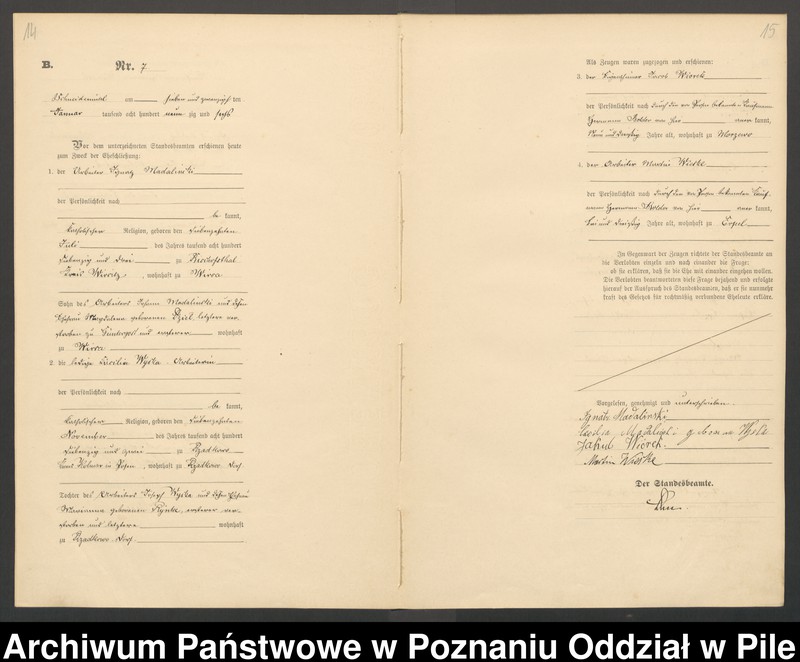 14
B.
Nr. 7
Schneidemühl am sieben und zwanzigsten
Januar tausend acht hundert neunzig und sechs
Vor dem unterzeichneten Standesbeamten erschienen heute
zum Zweck der Eheschließung:
1. der Arbeiter Ignatz Madalinski
der Persönlichkeit nach
be kannt,
katholischer Religion, geboren den siebenzehnten
Juli des Jahres tausend acht hundert
siebenzig und drei zu
Kreis Wirsitz, wohnhaft zu
Sohn des Arbeiters Johann Madalinski und dessen
Ehefrau Magdalena geborenen letztere ver-
storben zu und ersterer wohnhaft
zu
2. die ledige Cäcilia Wyska Arbeiterin
der Persönlichkeit nach
be kannt,
katholischer Religion, geboren den siebenzehnten
November des Jahres tausend acht hundert
siebenzig und zwei zu Rzadkowo
Kreis Kolmar in Posen, wohnhaft zu Rzadkowo Dorf
Tochter des Arbeiters Joseph Wyska und dessen Ehefrau
Marianna geborenen ersterer ver-
storben und letztere wohnhaft
zu Rzadkowo Dorf
15
Als Zeugen waren zugezogen und erschienen:
3. der Jacob Wiorek
der Persönlichkeit nach durch den von Person bekannten
Hermann von hier aner kannt,
und dreißig Jahre alt, wohnhaft zu Morzewo
4. der Arbeiter Martin Wieske
der Persönlichkeit nach durch den von Person bekannten Kauf-
mann Hermann von hier aner kannt,
und dreißig Jahre alt, wohnhaft zu Erpel
In Gegenwart der Zeugen richtete der Standesbeamte an
die Verlobten einzeln und nach einander die Frage:
ob sie erklären, daß sie die Ehe mit einander eingehen wollen.
Die Verlobten beantworteten diese Frage bejahend und erfolgte
hierauf der Ausspruch des Standesbeamten, daß er sie nunmehr
kraft des Gesetzes für rechtmäßig verbundene Eheleute erkläre.
Vorgelesen, genehmigt und unterschrieben
Ignatz Madalinski
Madalinski geborene
Jakub Wiorek
Martin Wieske
Der Standesbeamte.
Archiwum Państwowe w Poznaniu Oddział w Pile